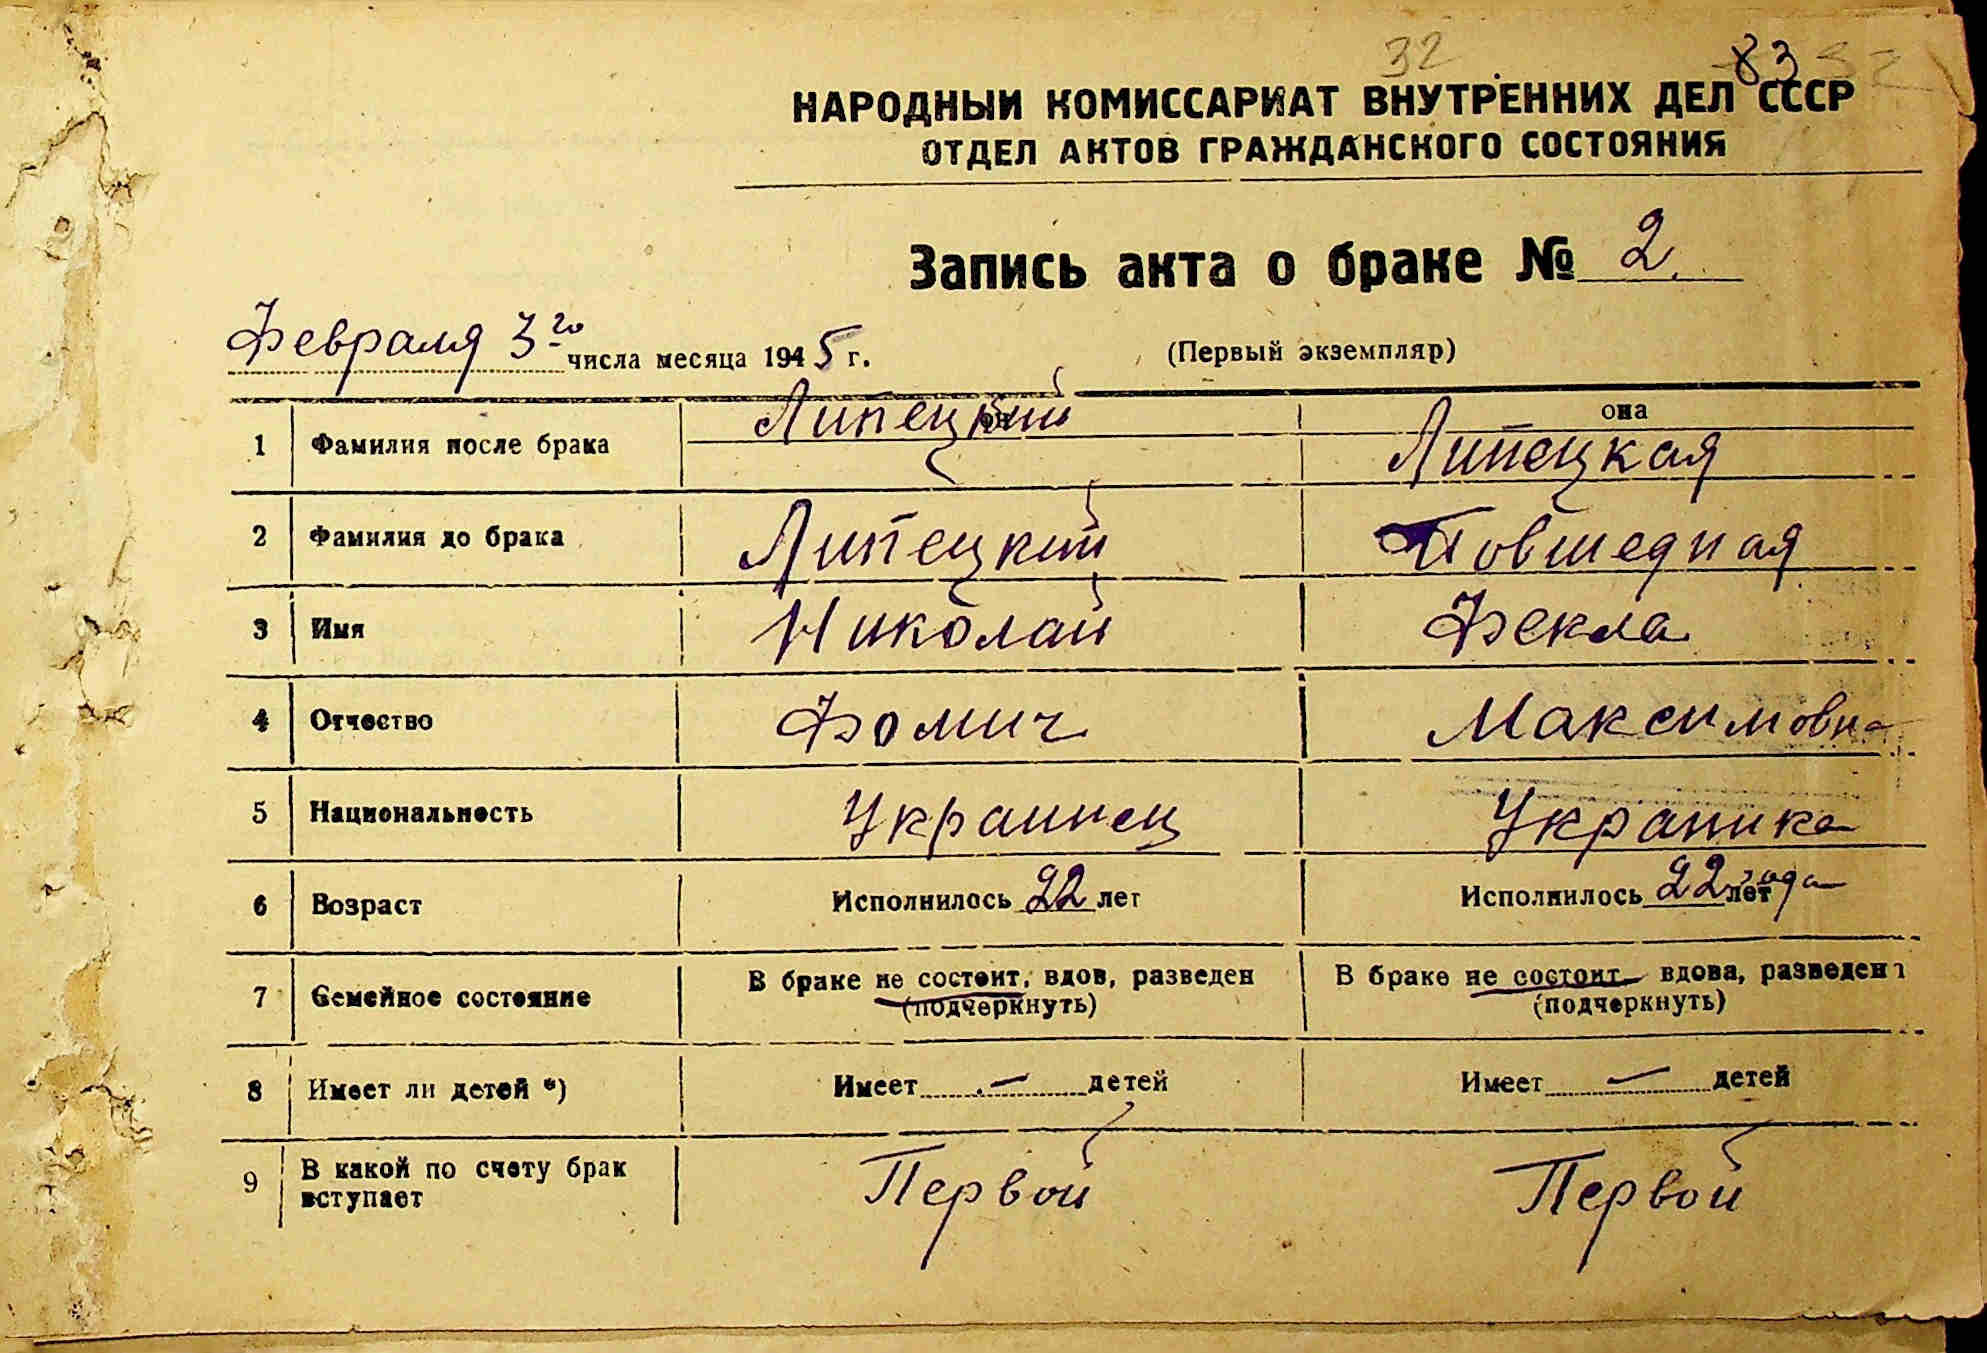 32 83 32
НАРОДНЫЙ КОМИССАРИАТ ВНУТРЕННИХ ДЕЛ СССР
ОТДЕЛ АКТОВ ГРАЖДАНСКОГО СОСТОЯНИЯ
Запись акта о браке № 2.
Февраля 3го числа месяца 1945 г. (Первый экземпляр)
он она
1 Фамилия после брака Липецкий Липецкая
2 Фамилия до брака Липецкий Повшедная
3 Имя Николай Фекла
4 Отчество Фомич Максимовна
5 Национальность Украинец Украинка
6 Возраст Исполнилось 22 лет Исполнилось 22 лет года
7 Семейное состояние В браке не состоит, вдов, разведен В браке не состоит вдова, разведен
(подчеркнуть) (подчеркнуть)
8 Имеет ли детей *) Имеет — детей Имеет — детей
9 В какой по счету брак Первой Первой
вступает